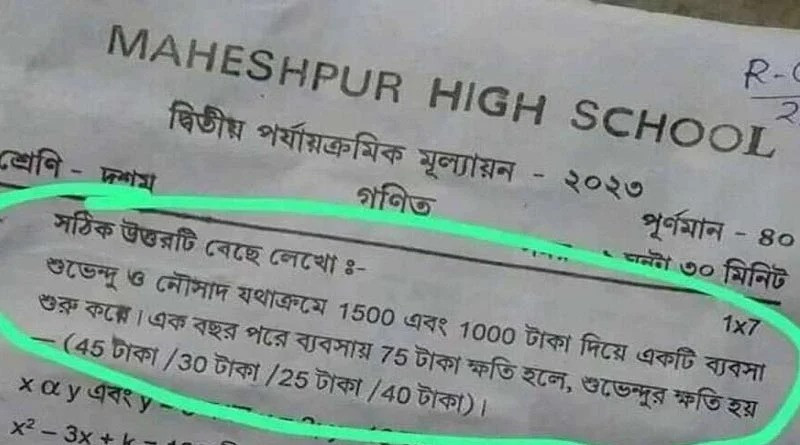 MAHESHPUR HIGH SCHOOL
দ্বিতীয় পর্যায়ক্রমিক মূল্যায়ন - ২০২৩
শ্রেণি - দশম
গণিত
পূর্ণমান - 80
৩০ মিনিট
সঠিক উত্তরটি বেছে লেখো ঃ-
1x7
শুভেন্দু ও নৌসাদ যথাক্রমে 1500 এবং 1000 টাকা দিয়ে একটি ব্যবসা
শুরু করে। এক বছর পরে ব্যবসায় 75 টাকা ক্ষতি হলে, শুভেন্দুর ক্ষতি হয়
– (45 টাকা /30 টাকা /25 টাকা /40 টাকা)।
x α y এবং y
x² – 3x + k